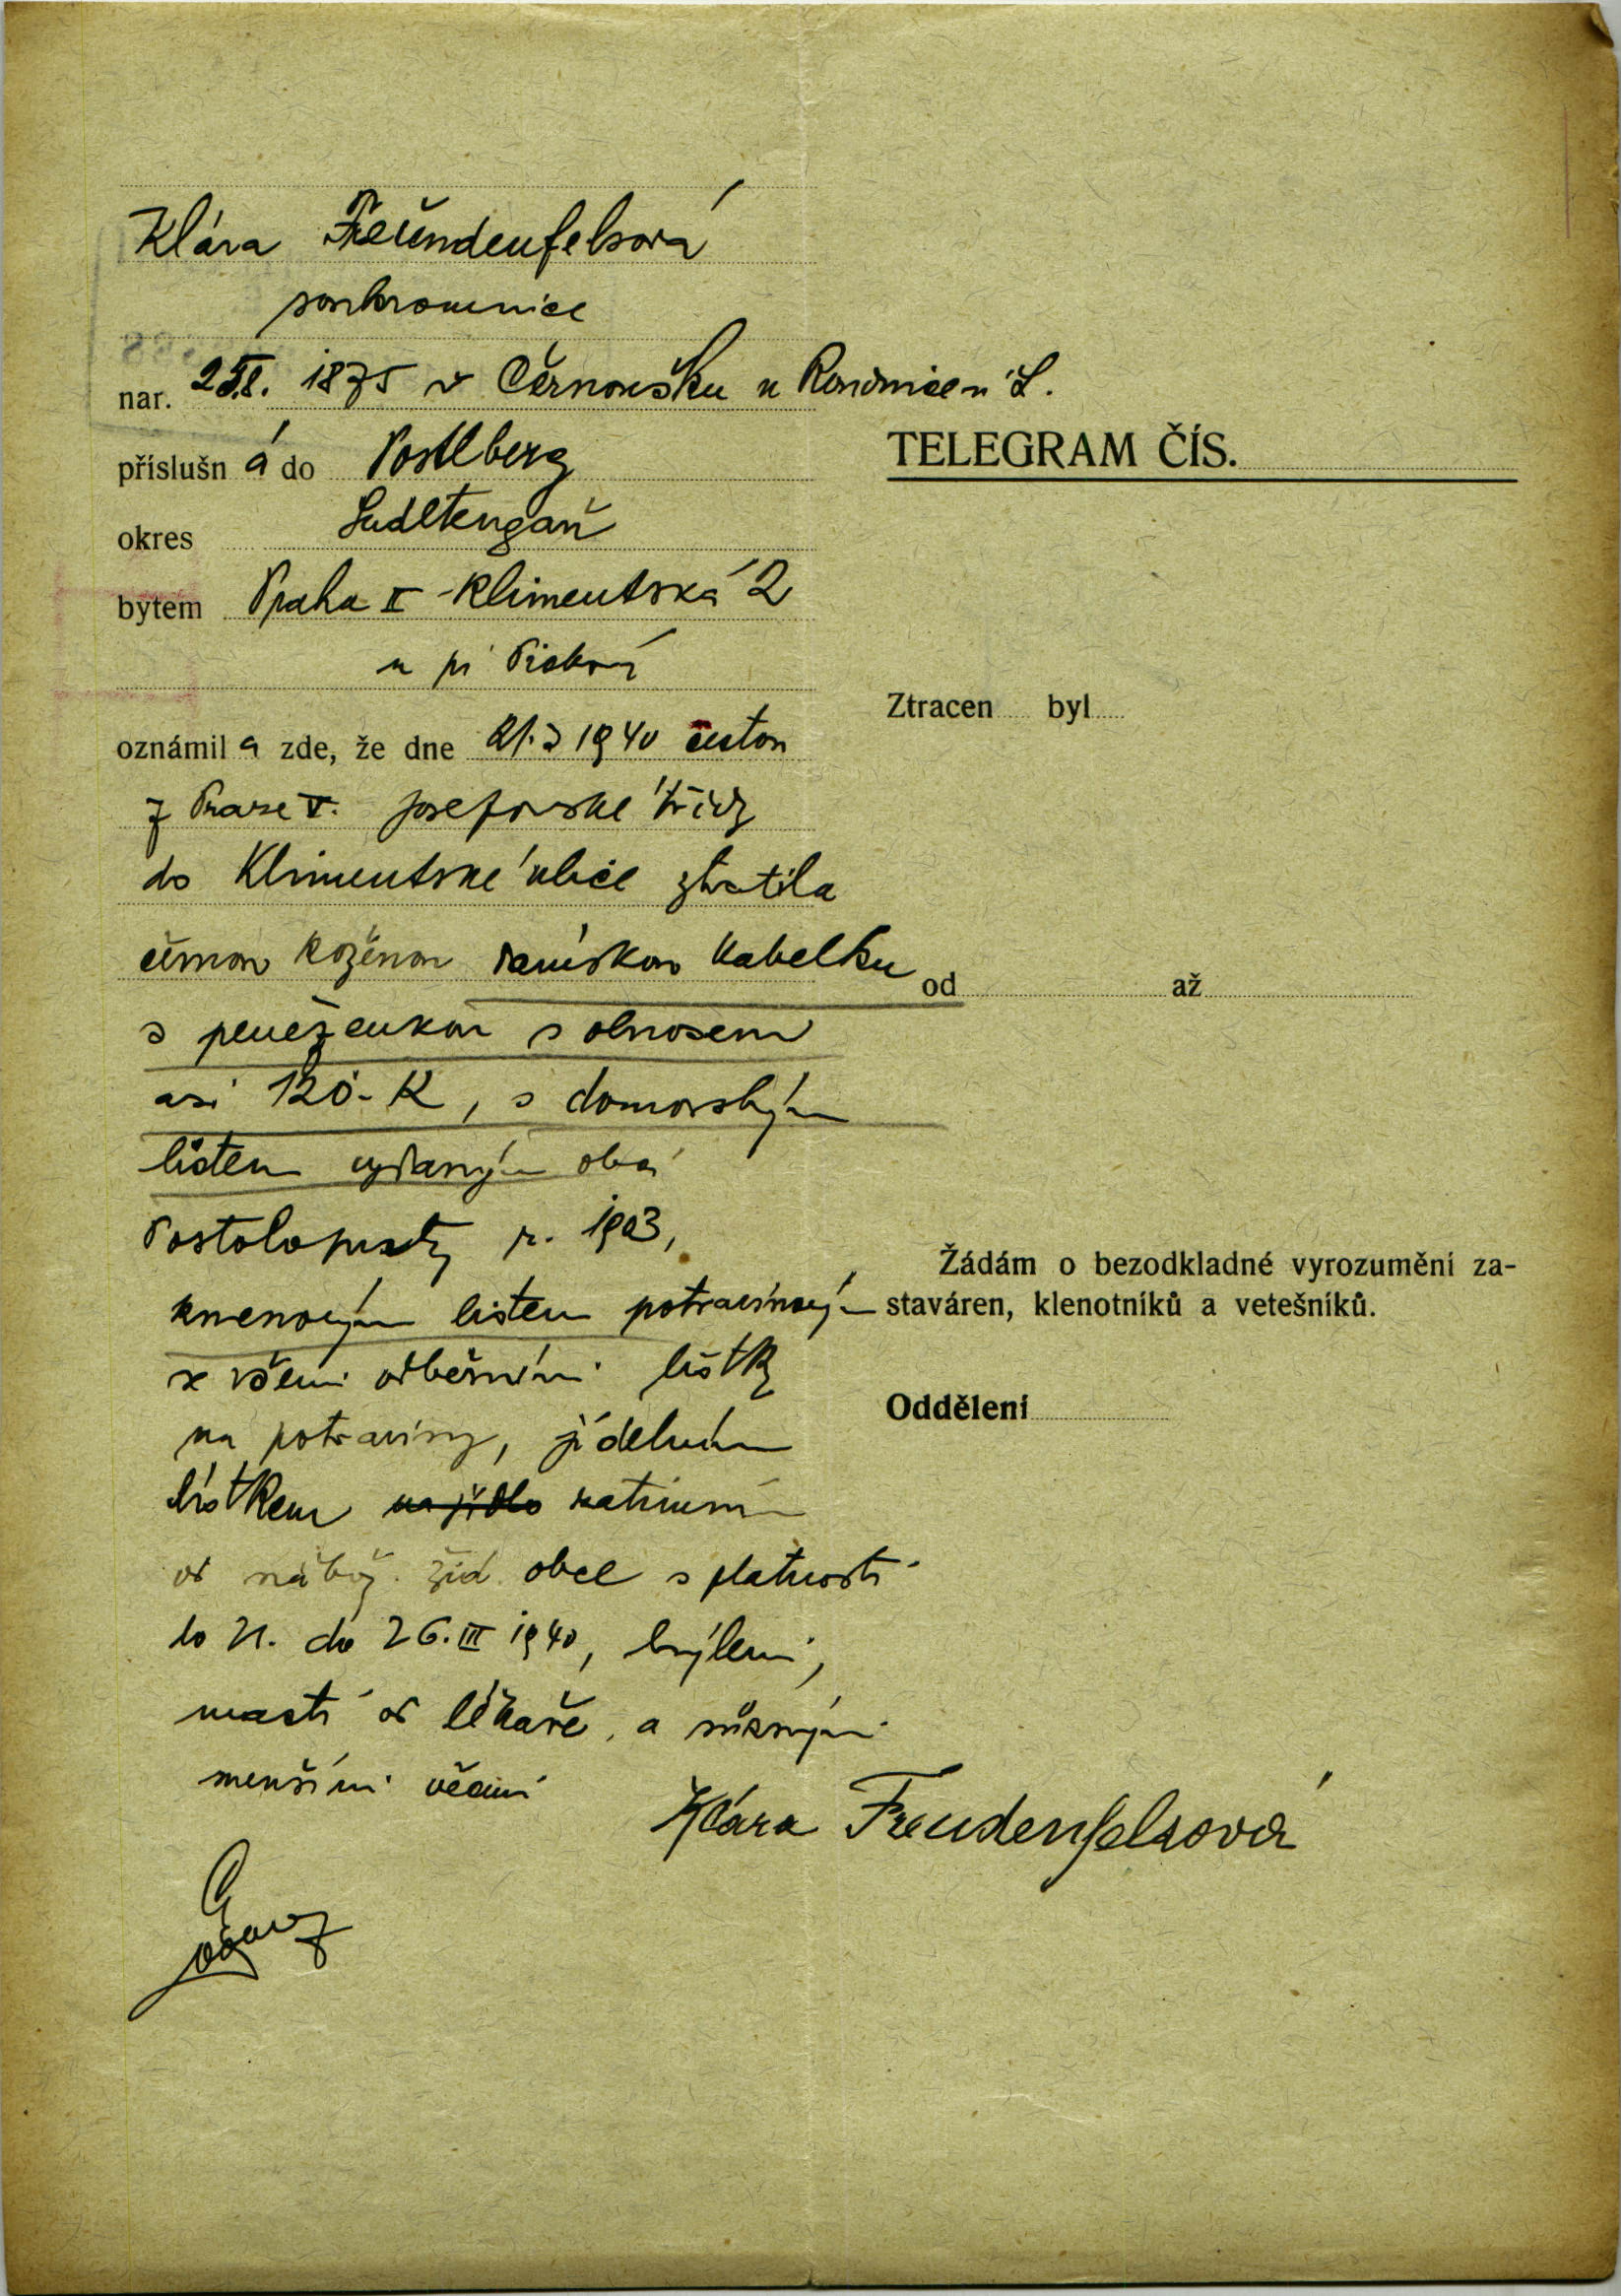 Klára Freündenfelsová
soukromnice
nar. 25.8. 1875 v Černoušku u Roudnice n L.
příslušn á do Postlberg
okres Sudetengau
bytem Praha II - Klimentská 2
u pí Pickový
oznámil a zde, že dne 21.3 1940 cestou
z Prahe V. Josefovské třídy
do Klimentské ulice ztratila
černou koženou dámskou kabelku
s peněženkou s obnosem
asi 120.- K, s domovským
listem vydaným obcí
Postoloprty r. 1903,
kmenovým listem potravinovým
se všemi odběrními lístky
na potraviny, jídelním
lístkem na jídlo
od nábož. žid. obce s platností
do 26.III 1940, brýlemi,
mastí od lékaře, a různými
menšími věcmi
Klára Freudenfelsová
TELEGRAM ČÍS.
Ztracen byl
od až
Žádám o bezodkladné vyrozumění za-
staváren, klenotníků a vetešníků.
Oddělení